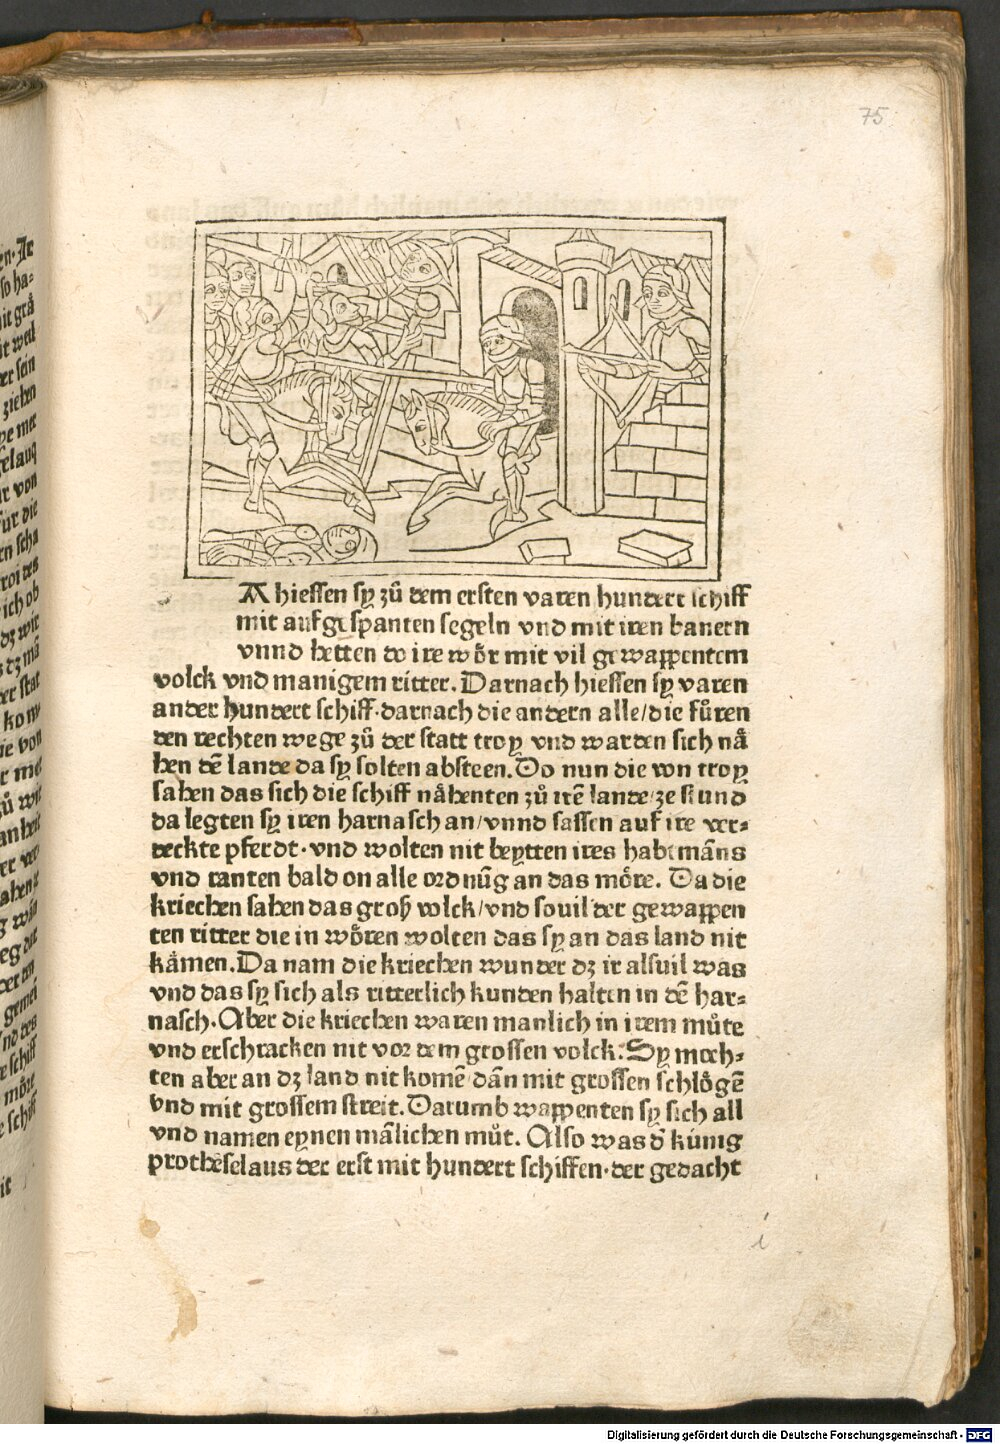 75
A hiessen sy zů dem ersten varen hundert schiff
mit aufgespanten segeln vnd mit iren banern
vnnd hetten do ire wör mit vil gewappentem
volck vnd manigem ritter. Darnach hiessen sy varen
ander hundert schiff·darnach die andern alle/die fůren
den rechten wege zů der statt troy vnd warden sich nå
hen dē lande da sy solten absteen. Do nun die von troy
sahen das sich die schiff nåhenten zů irē lande/ze stund
da legten sy iren harnasch an/vnnd sassen auf ire ver⸗
deckte pferdt·vnd wolten nit beytten ires habtmāns
vnd ranten bald on alle ordnūg an das möre. Da die
kriechen sahen das groß volck/vnd souil der gewappen
ten ritter die in wören wolten das sy an das land nit
kåmen. Da nam die kriechen wunder dz ir alsuil was
vnd das sy sich als ritterlich kunden halten in dē har⸗
nasch. Aber die kriechen waren manlich in irem můte
vnd erschracken nit vor dem grossen volck. Sy moch⸗
ten aber an dz land nit komē dān mit grossen schlögē
vnd mit grossem streit. Darumb wappenten sy sich all
vnd namen eynen mālichen můt. Also was d̄ künig
protheselaus der erst mit hundert schiffen·der gedacht
i
Digitalisierung gefördert durch die Deutsche Forschungsgemeinschaft - DFG